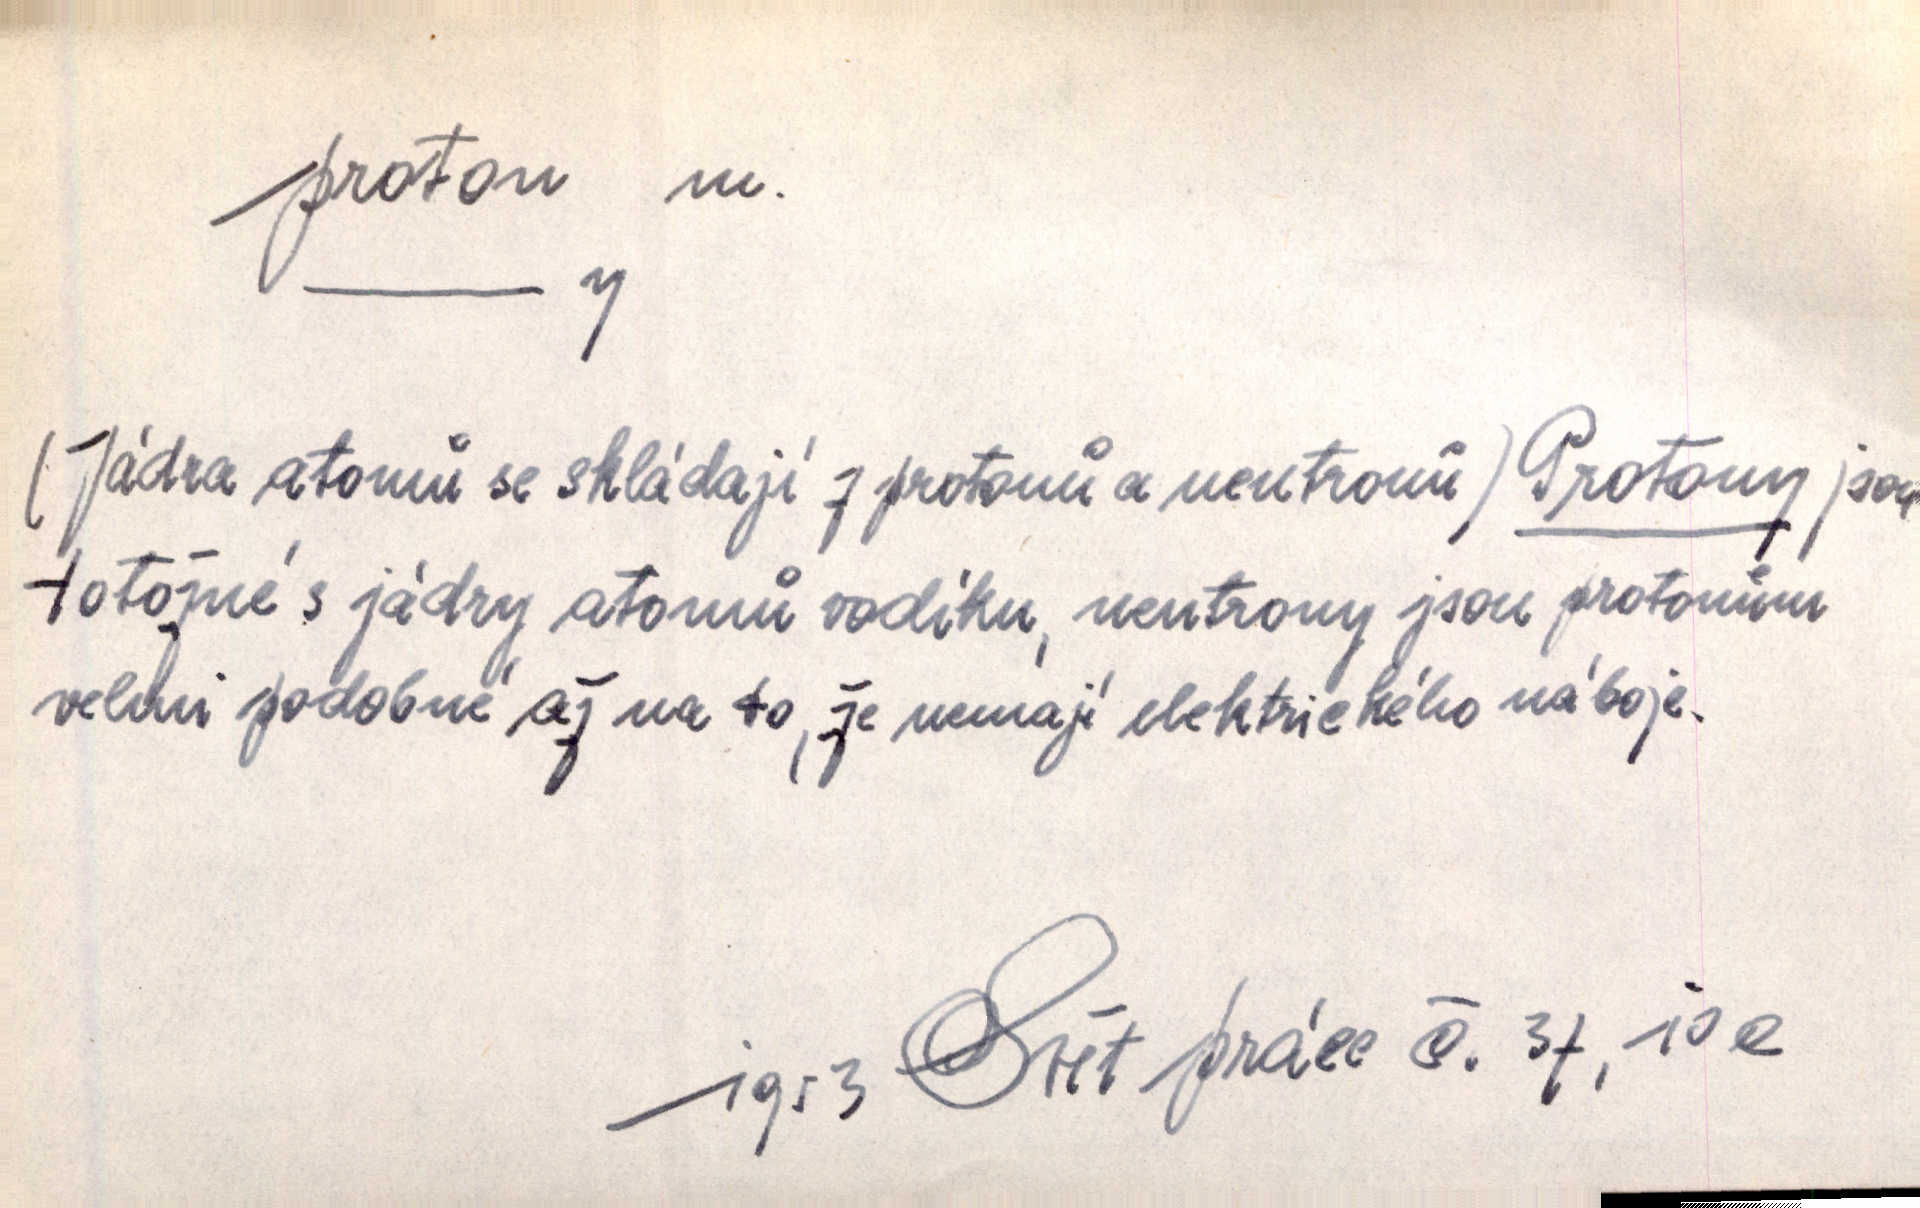 proton m.
——— y
(Jádra atomů se skládají z protonů a neutronů) Protony jsou
totožné s jádry atomů vodíku, neutrony jsou protonům
velmi podobné až na to, že nemají elektrického náboje.
1953 Svět práce č. 37, 10 a